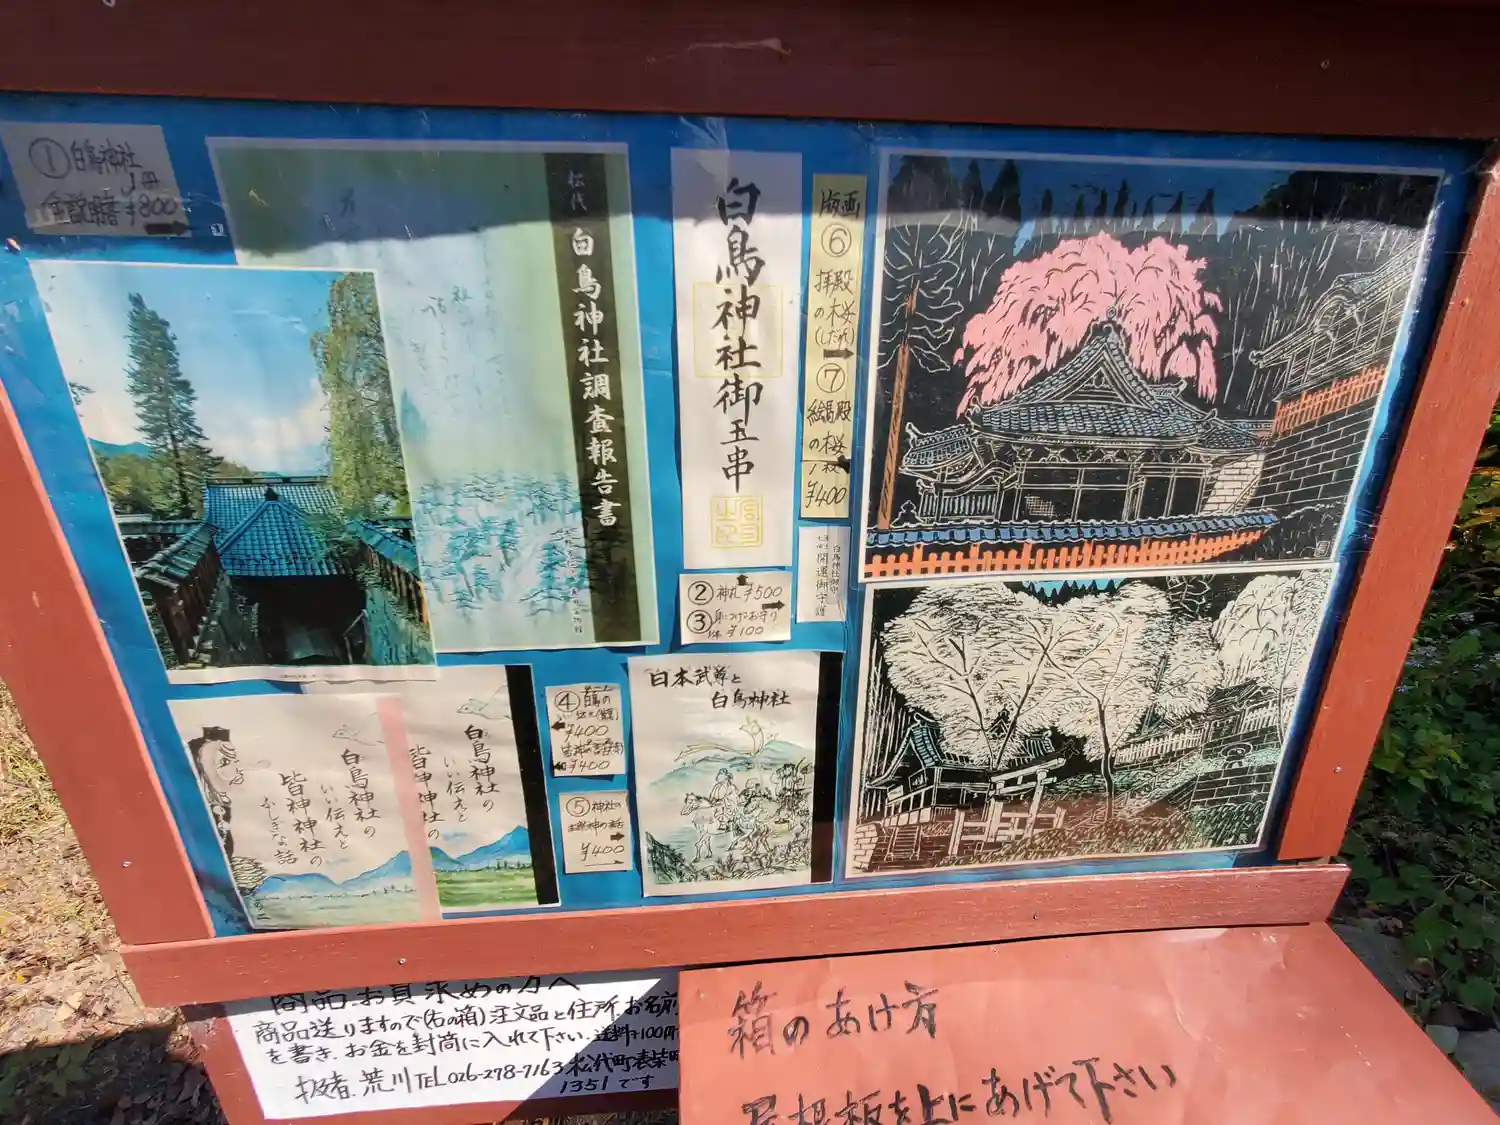 ① 白鳥神社
1冊
全説明書 ¥800
松代 白鳥神社調査報告書
白鳥神社御玉串
版画
⑥
拝殿
の桜
(しだれ)
⑦
絵馬殿
の桜
1枚
¥400
② 神札 ¥500
③ 身につけるお守り
1体 ¥100
白鳥神社御守
開運御守護
白鳥神社の
いい伝えと
皆神神社の
ふしぎな話
白鳥神社の
いい伝えと
皆神神社の
④
¥400
¥400
⑤ 神社の
¥400
日本武尊と
白鳥神社
商品お買求めの方へ
商品送りますので(右の箱)注文品と住所.お名前
を書き.お金を封筒に入れて下さい.送料¥100円
扱者.荒川TEL026-278-7163.松代町表柴町
1351です
箱のあけ方
屋根板を上にあげて下さい